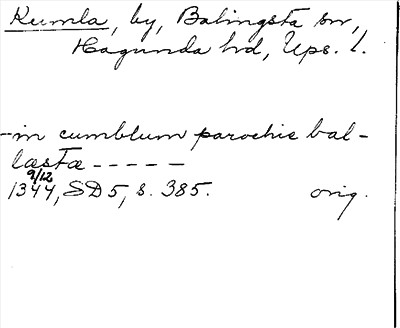 Kumla, by, Balingsta sn,
Hagunda hd, Ups. l.
-in cumblum parochie bal-
læstæ - - - - -
9/12
1344, SD 5, s. 385. orig.